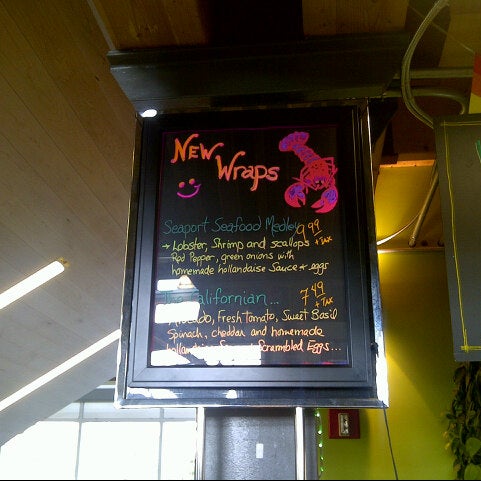 New Wraps
Seaport Seafood Medley 9.99
→ Lobster, Shrimp and scallops + TAX
Red Pepper, green onions with
homemade hollandaise Sauce + eggs
Californian... 7.49
+ TAX
Avocado, Fresh Tomato, Sweet Basil
Spinach, cheddar and homemade
Scrambled Eggs...